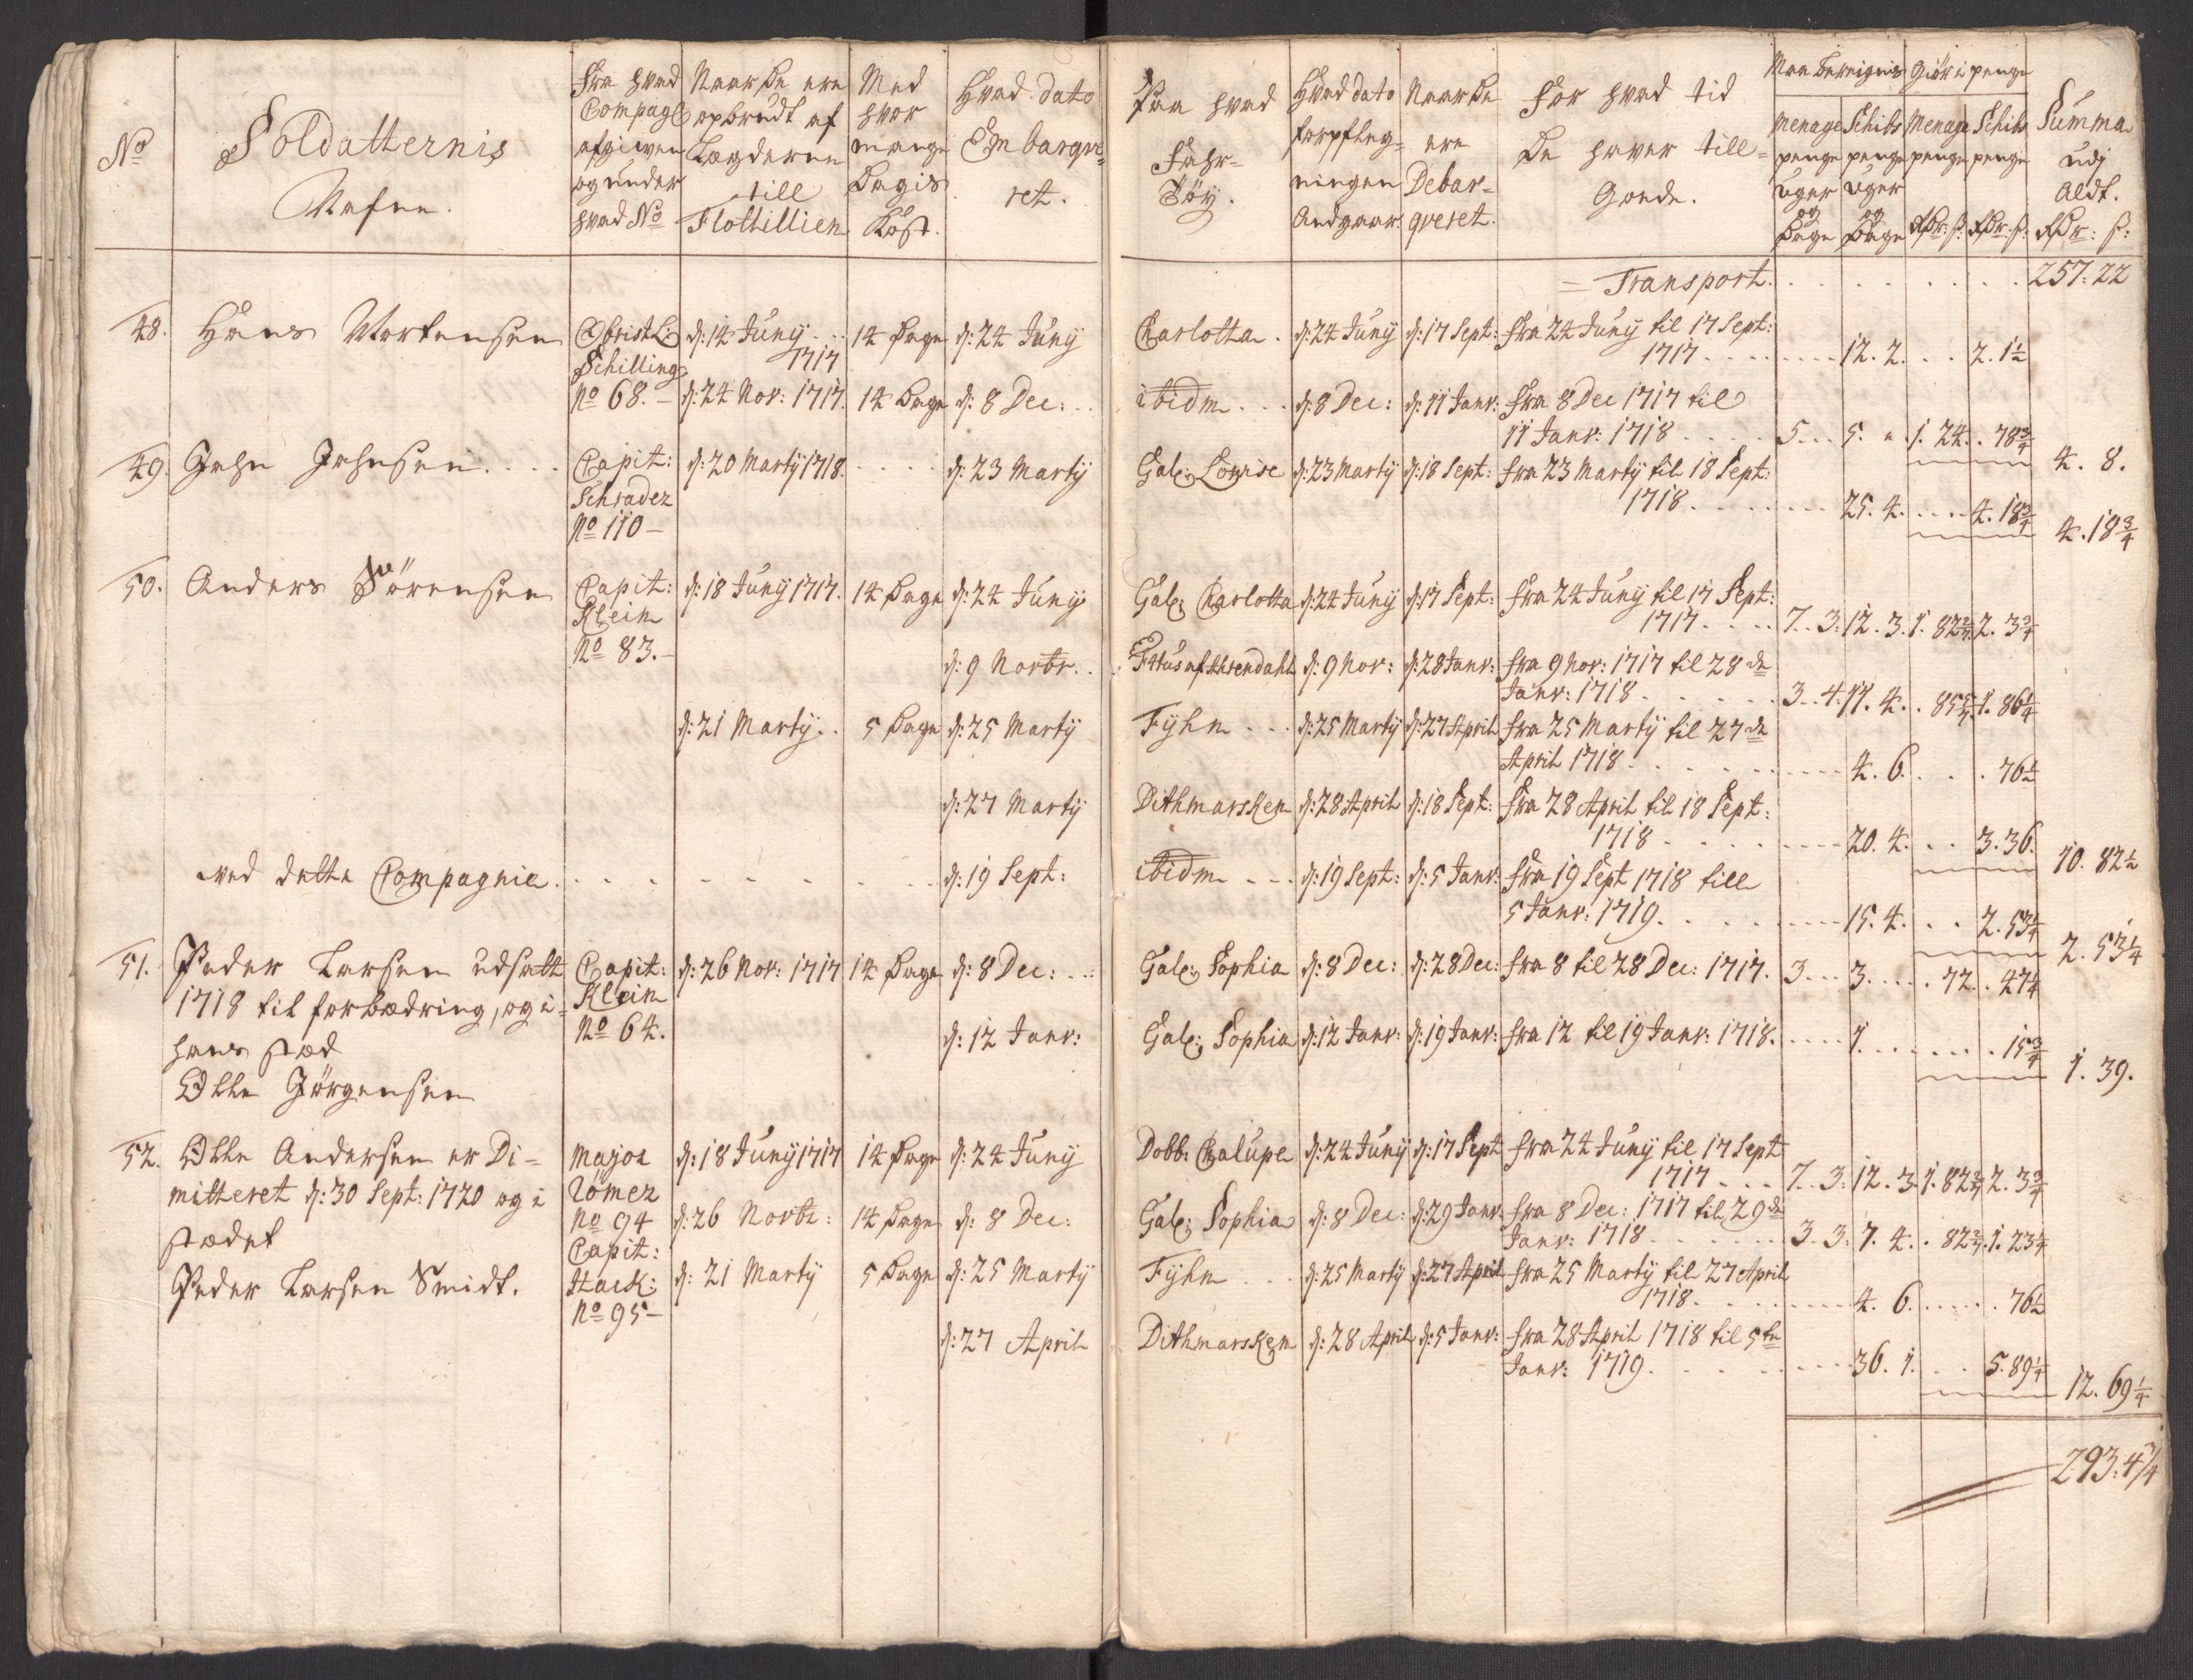 No
Soldatternis
Nafne.
Fra hvad
Compagl
afgiwen
og under
hvad No
Naar de ere
opbrudt af
Lægderne
till
Flottillien
Med
hvor
mange
Dagis
Kost.
Hvad dato
Embarqve=
ret.
Paa hvad
Fahr=
Töy.
Hvad dato
forpfleg=
ningen
Andgaar.
Naar de
ere
Debar=
qveret.
For hvad tid
De haver till=
Gode.
Maa bereignis
Giör i penge
Menage
penge
uger
og
Dage
Schibs
penge
uger
og
Dage
Menage
penge
Rdr: s:
Schibs
penge
Rdr: s:
Summa
udj
Aldt.
Rdr: s:
= Transport. . . . . . . . . . 257. 22
48. Hans Mortensen Obrist L: d: 14 Juny . . . 14 Dage d: 24 Juny Carlotta . d: 24 Juny d: 17 Sept: fra 24 Juny til 17 Sept:
Schilling 1717 1717 . . . . . . . 12. 2. . . 2. 1½
No 68. – d: 24 Nov: 1717. 14 Dage d: 8 Dec: . . ibidm . . . d: 8 Dec: d: 11 Janr: fra 8 Dec 1717 til
11 Janr: 1718 . . . . 5 . . . 5. „ 1. 24. . 78¾ 4. 8.
49. John Johnsen. . . . Capit: d: 20 Marty 1718. . . . . d: 23 Marty Gal: Lowise d: 23 Marty d: 18 Sept: fra 23 Marty til 18 Sept:
Schrader 1718 . . . . . . . 25. 4. . . . 4. 18¾ 4. 18¾
No 110 –
50. Anders Sörensen Capit: d: 18 Juny 1717. 14 Dage d: 24 Juny Gal: Carlotta d: 24 Juny d: 17 Sept: fra 24 Juny til 17 Sept:
Klein 1717 . . . . 7. 3. 12. 3. 1. 82¾ 2. 3¾
No 83. – d: 9 Novbr. . . d: 9 Nov: d: 28 Janr: fra 9 Nov: 1717 til 28 de
Janr: 1718 . . . . . . 3. 4. 11. 4. . 85 1. 86¼
d: 21 Marty . . 5 Dage d: 25 Marty Fyhn . . . d: 25 Marty d: 27 April fra 25 Marty til 27 de
April 1718 . . . . . . . . 4. 6. . . . 76½
d: 27 Marty Dithmarsken d: 28 April d: 18 Sept: fra 28 April til 18 Sept:
1718 . . . . . . . 20. 4. . . 3. 36. 10. 82½
ved dette Compagnie . . . . . . . . . d: 19 Sept: ibidm . . . d: 19 Sept: d: 5 Janr: fra 19 Sept 1718 till
5 Janr: 1719 . . . . . . . 15. 4. . . 2. 53¼ 2. 53¼
51. Peder Larsen udsatt Capit: d: 26 Nov: 1717 14 Dage d: 8 Dec: . . . Gal: Sophia d: 8 Dec: d: 28 Dec: fra 8 til 28 Dec: 1717. 3 . . . 3 . . . . 72. . 47¼
1718 til forbædring, og i Klein
hans stæd No 64. d: 12 Janr: Gal: Sophia d: 12 Janr: d: 19 Janr: fra 12 til 19 Janr: 1718. . . . . 1. . . . . . . 15¾ 1. 39.
Olle Jörgensen
52. Olle Andersen er Di= Major d: 18 Juny 1717 14 Dage d: 24 Juny Dobb: Chalupe d: 24 Juny d: 17 Sept fra 24 Juny til 17 Sept
mitteret d: 30 Sept: 1720 og i Römer 1717 . . . 7. 3. 12. 3. 1. 82¾ 2. 3¾
stædet No 94 d: 26 Novbr: 14 Dage d: 8 Dec: Gal: Sophia d: 8 Dec: d: 29 Janr: fra 8 Dec: 1717 til 29 de
Capit: Janr: 1718 . . . . . . 3. 3. 7. 4. . 82¾ 1. 23¼
Peder Larsen Smidt. Stack: d: 21 Marty 5 Dage d: 25 Marty Fyhn . . . d: 25 Marty d: 27 April fra 25 Marty til 27 April
No 95 – 1718. . . . . . . . 4. 6. . . . . . 76½
d: 27 April Dithmarsken d: 28 April d: 5 Janr: fra 28 April 1718 til 5 te
Janr: 1719 . . . . . . . . 36. 1. . . 5. 89¼ 12. 69¼
293. 4¾